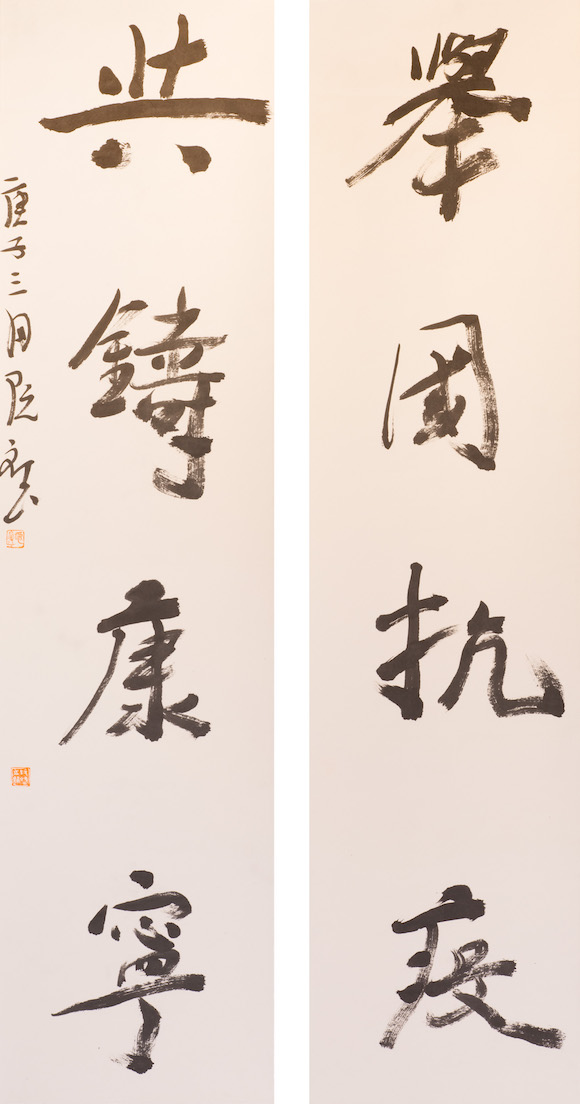 舉國抗疫
共鑄康寧
庚子三月